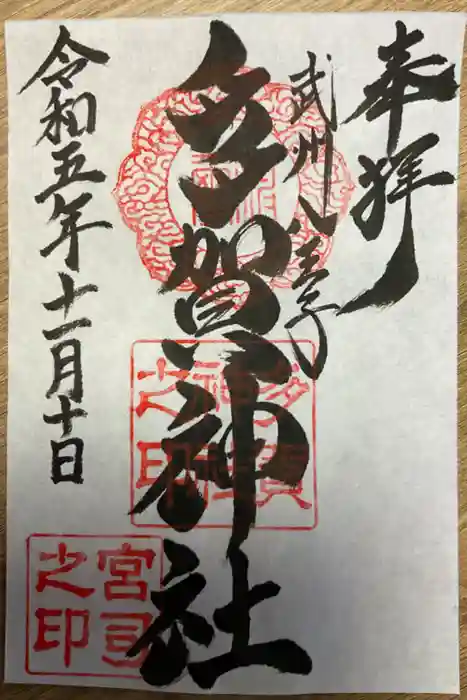 奉拝
武州八王子
多賀神社
令和五年十一月十日
多賀
神社
之印
宮司
之印